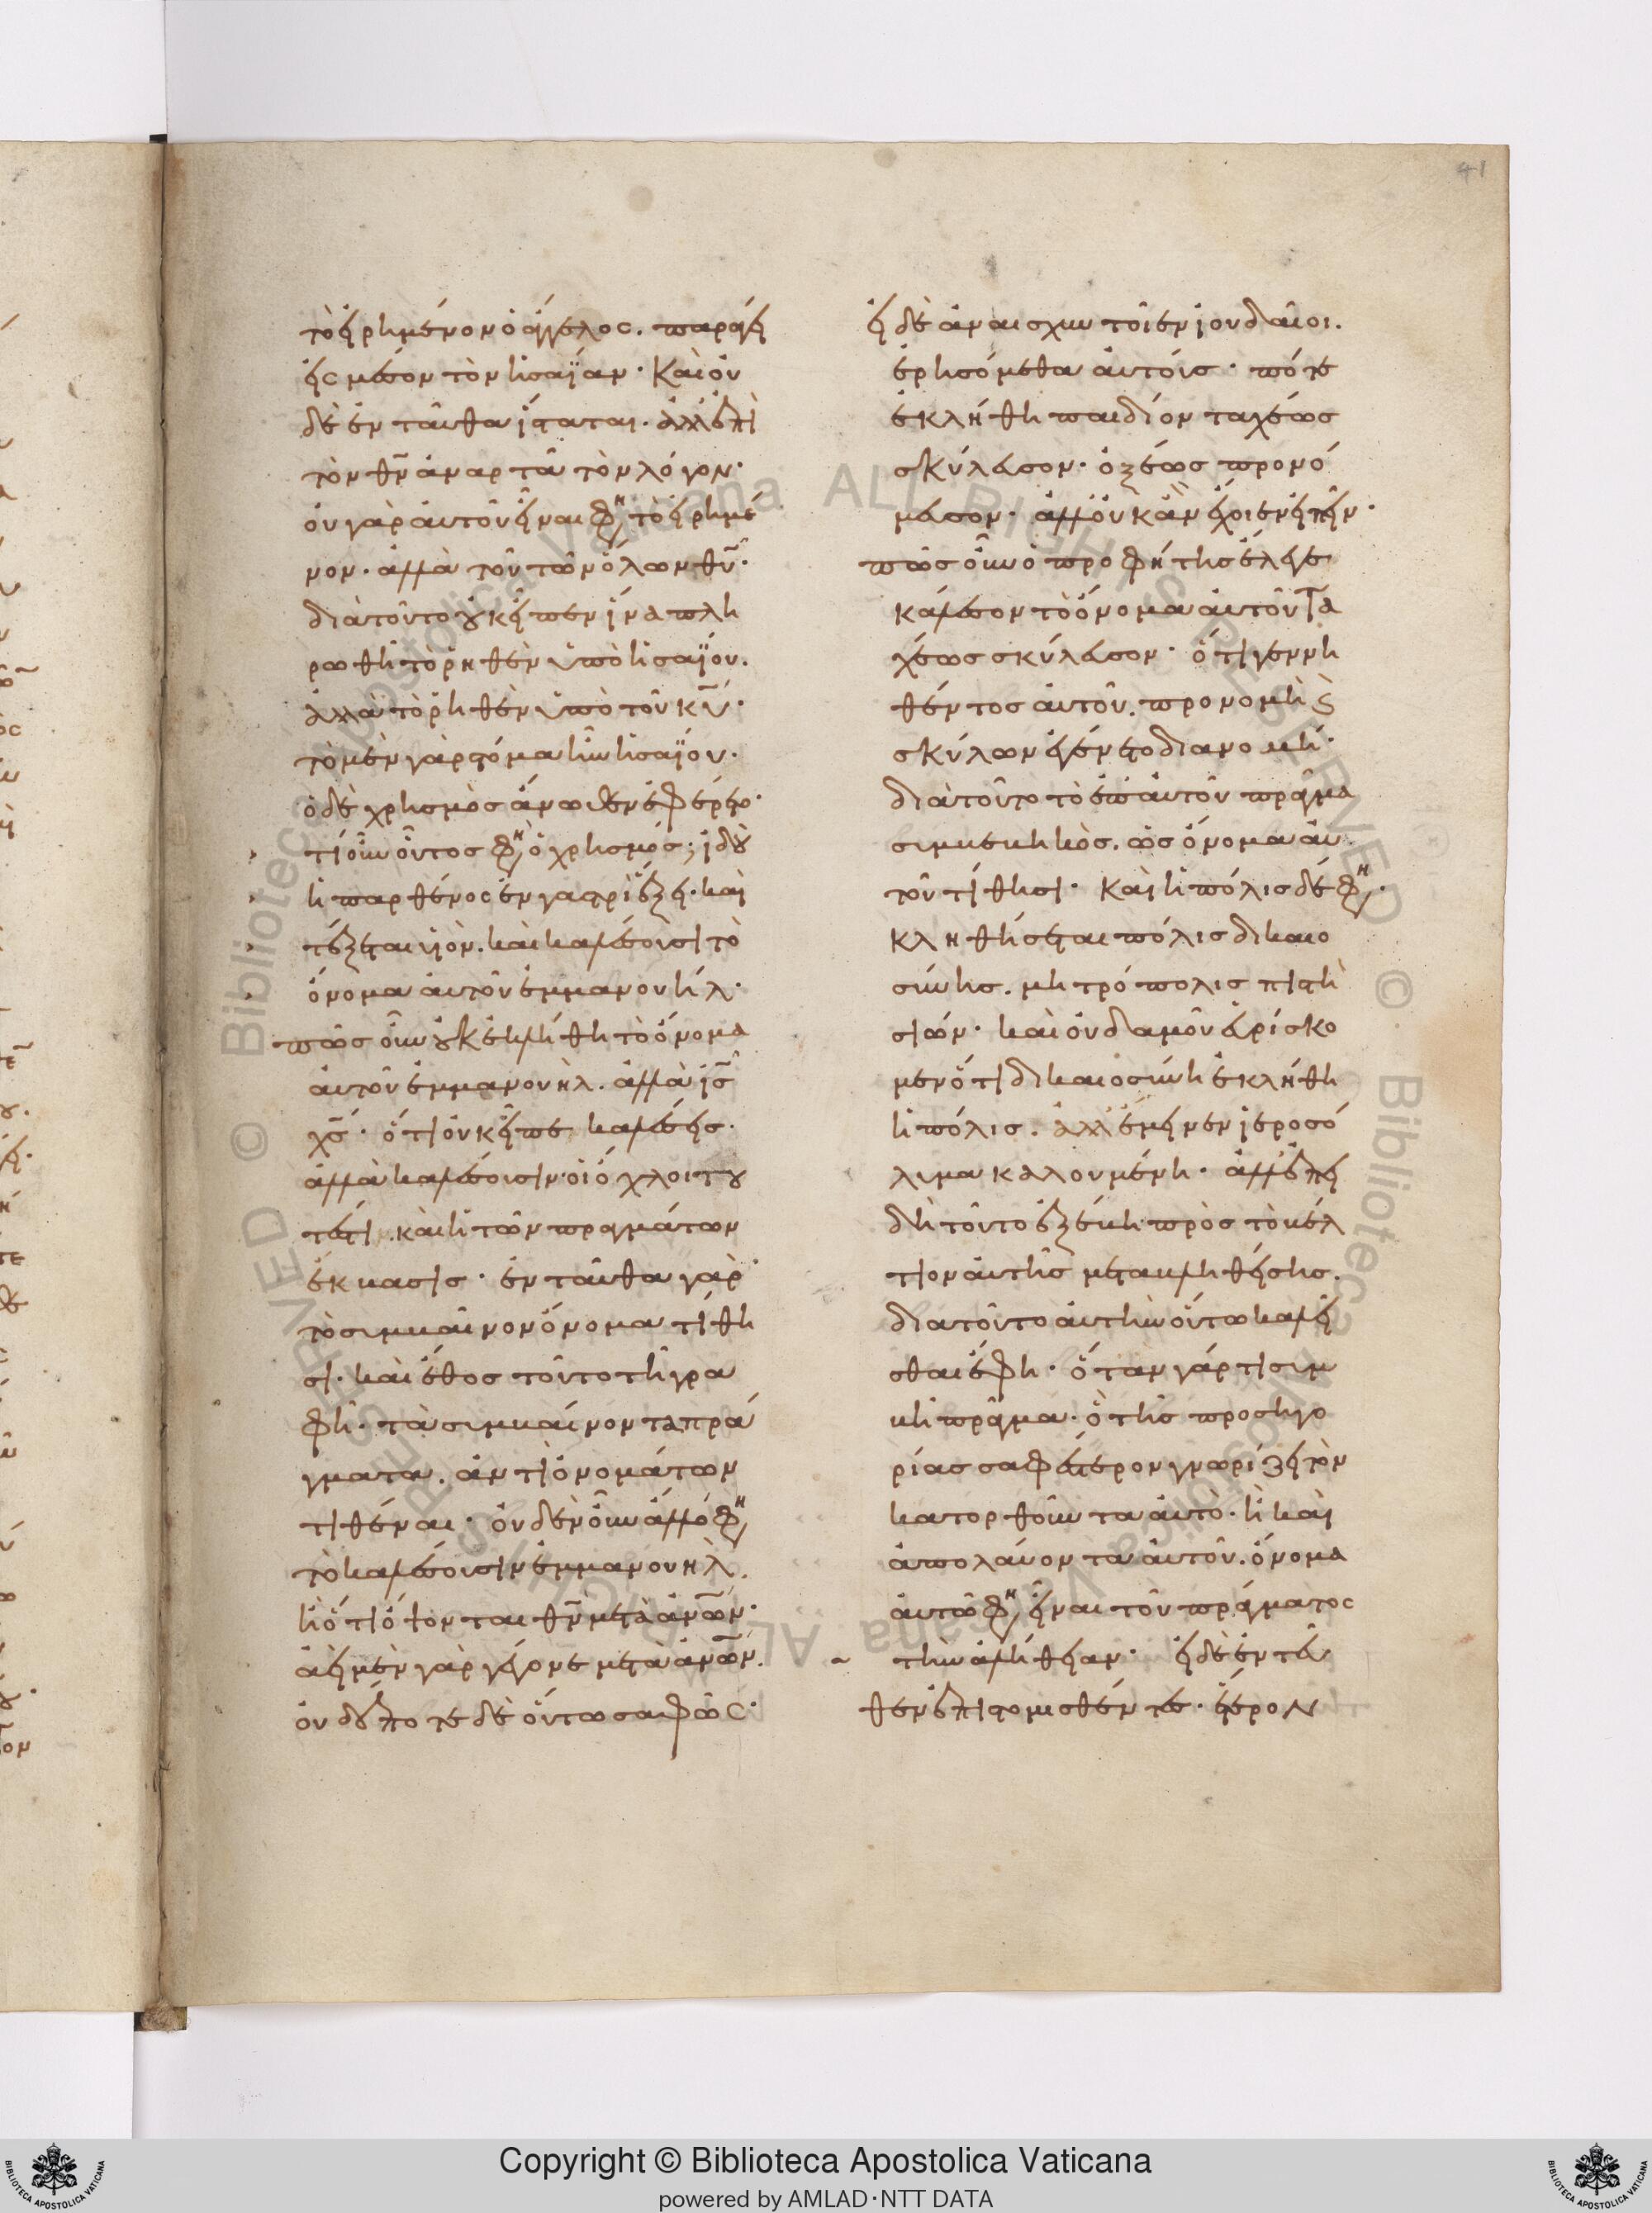 41
τὸ εἰρημένον ὁ ἄγγελος. παράγει
εἰς μέσον τὸν ἡσαΐαν· Καὶ οὐ
δὲ ἐνταῦθα ἵσταται. ἀλλ' ἐπὶ
τὸν θν̄ ἀναρτᾶ τὸν λόγον·
οὐ γὰρ αὐτοῦ εἶναι φη τὸ εἰρημέ
νον· ἀλλὰ τοῦ τῶν ὅλων θῡ·
διὰ τοῦτο οὐκ εἶπεν ἵνα πλη
ρωθῆ τὸ ῥηθὲν ὑπὸ ἡσαΐου.
ἀλλὰ τὸ ῥηθὲν ὑπὸ τοῦ κῡ·
τὸ μὲν γὰρ στόμα ἦν ἡσαΐου·
ὁ δὲ χρησμὸς ἄνωθεν ἐφέρετο·
τί οὖν οὗτος φη ὁ χρησμός; ἰδοὺ
ἡ παρθένος ἐν γαστρὶ ἕξει· καὶ
τέξεται υἱὸν. καὶ καλέσουσι τὸ
ὄνομα αὐτοῦ ἐμμανουήλ·
πῶς οὖν οὐκ ἐκλήθη τὸ ὄνομα
αὐτοῦ ἐμμανουὴλ. ἀλλὰ ις̄
χς̄· ὅτι οὐκ εἶπε καλέσεις·
ἀλλὰ καλέσουσιν· οἱ ὄχλοι του
τέστι. καὶ ἡ τῶν πραγμάτων
ἔκβασις· ἐνταῦθα γὰρ
τὸ συμβαῖνον ὄνομα τίθη
σι· καὶ ἔθος τοῦτο τῆ γρα
φῆ· τὰ συμβαίνοντα πρά
γματα. ἀντὶ ὀνομάτων
τιθέναι· οὐδὲν οὖν ἄλλό φη
τὸ καλέσουσιν ἐμμανουὴλ.
ἢ ὅτι ὄψονται θν̄ μετὰ ἀνω̄ν·
ἀεὶ μὲν γὰρ γέγονε μετὰ ἀνω̄ν.
οὐδέποτε δὲ οὕτω σαφῶς·
εἰ δὲ ἀναισχυντοῖεν ἰουδαῖοι.
ἐρησόμεθα αὐτούς· πότε
ἐκλήθη παιδίον ταχέως
σκύλασον· ὀξέως προνό
μασον· ἀλλ' οὐκ ἂν ἔχοιεν εἰπεῖν·
πῶς οὖν ὁ προφήτης ἔλεγε
κάλεσον τὸ ὄνομα αὐτοῦ Τα
χέως σκύλασον· ὅτι γεννη
θέντος αὐτοῦ. προνομὴ ϗ
σκύλων ἐγένετο διανομή·
διὰ τοῦτο τὸ ἐπ' αὐτοῦ πρᾶγμα
συμβεβηκὸς. ὡς ὄνομα αὐ
τοῦ τίθησι· Καὶ ἡ πόλις δέ φη·
κληθήσεται πόλις δικαιο
σύνης. μητρόπολις πιστὴ
σιών· καὶ οὐδαμοῦ εὑρίσκο
μεν ὅτι δικαιοσύνη ἐκλήθη
ἡ πόλις. ἀλλ' ἔμεινεν ἱεροσό
λυμα καλουμένη· ἀλλ' ἐπει
δὴ τοῦτο ἐξέβη πρὸς τὸ βέλ
τιον αὐτῆς μεταβληθείσης.
διατοῦτο αὐτὴν οὕτω καλεῖ
σθαι ἔφη· ὅταν γάρ τι συμ
βῆ πρᾶγμα· ὃ τῆς προσηγο
ρίας σαφέστερον γνωρίζει τὸν
κατορθοῦντα αὐτὸ· ἢ καὶ
ἀπολαύοντα αὐτοῦ. ὄνομα
αὐτῶ φη εἶναι τοῦ πράγματος
τὴν ἀλήθειαν· εἰ δὲ ἐντεῦ
θεν ἐπιστομισθέντες· ἕτερον